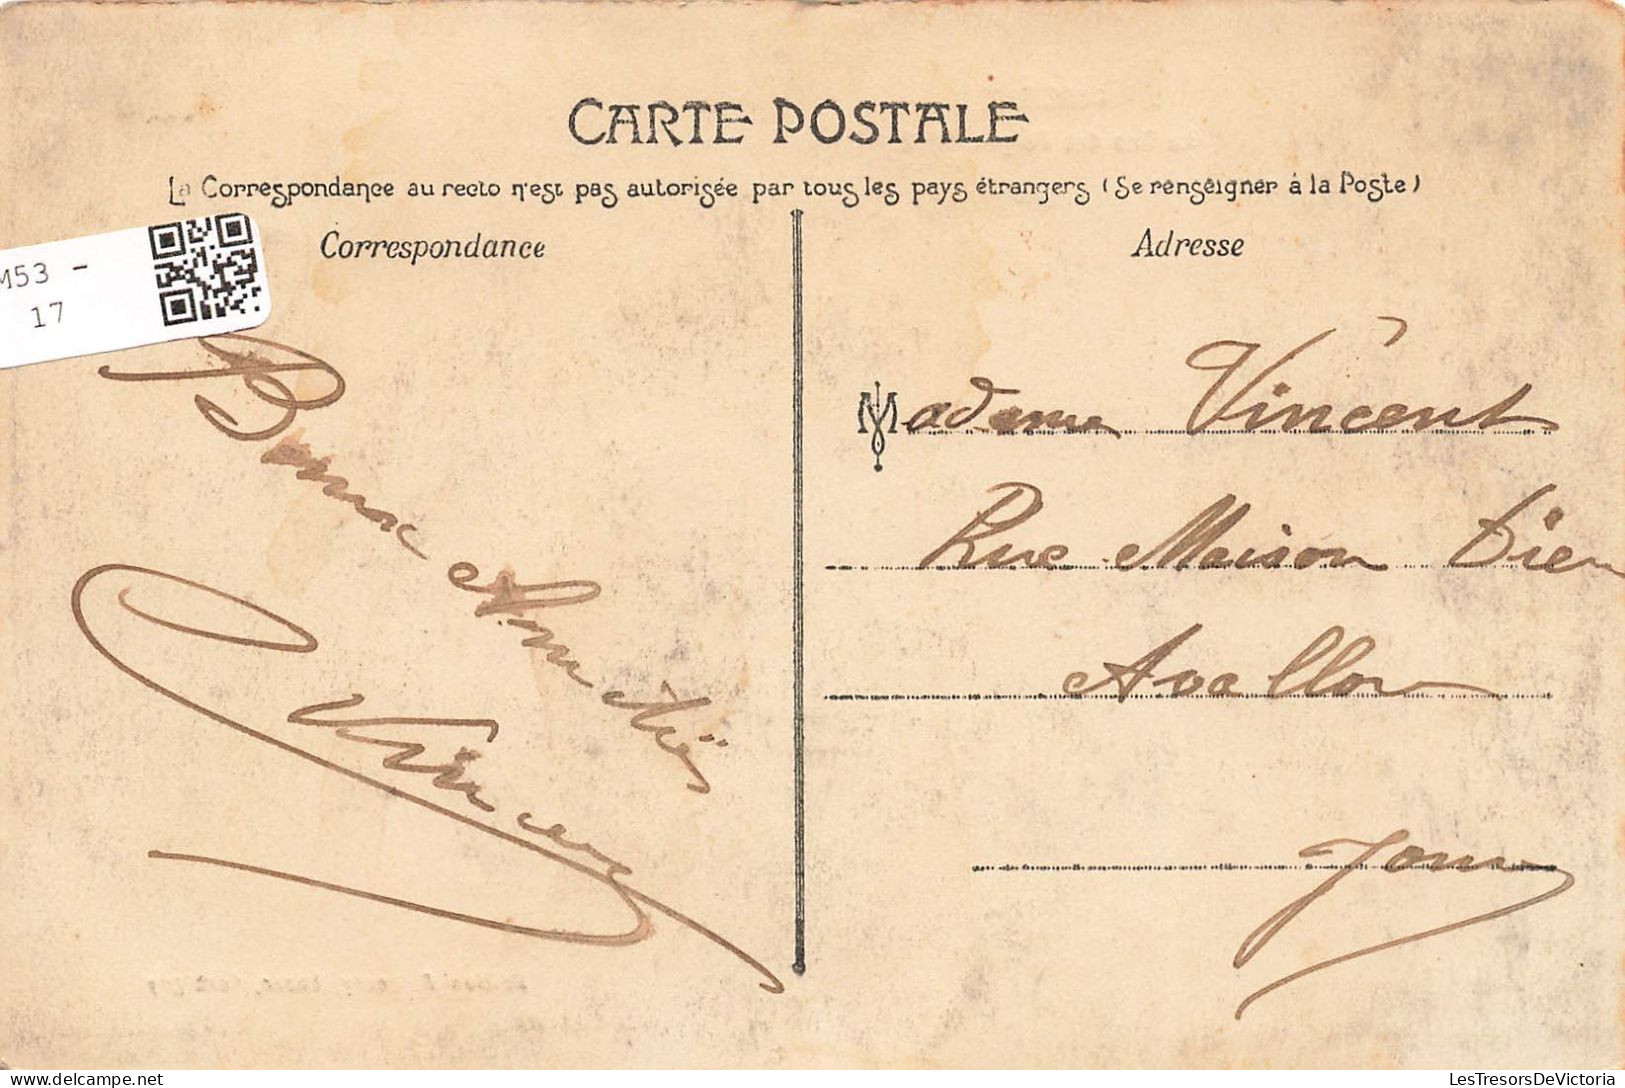 CARTE POSTALE
La Correspondance au recto n'est pas autorisée par tous les pays étrangers (Se renseigner à la Poste)
Correspondance
Adresse
M53 -
17
Bonnes Amitiés
Vincent
Madame Vincent
Rue Maison Dieu
Avallon
Yonne
LesTresorsDeVictoria
delcampe.net